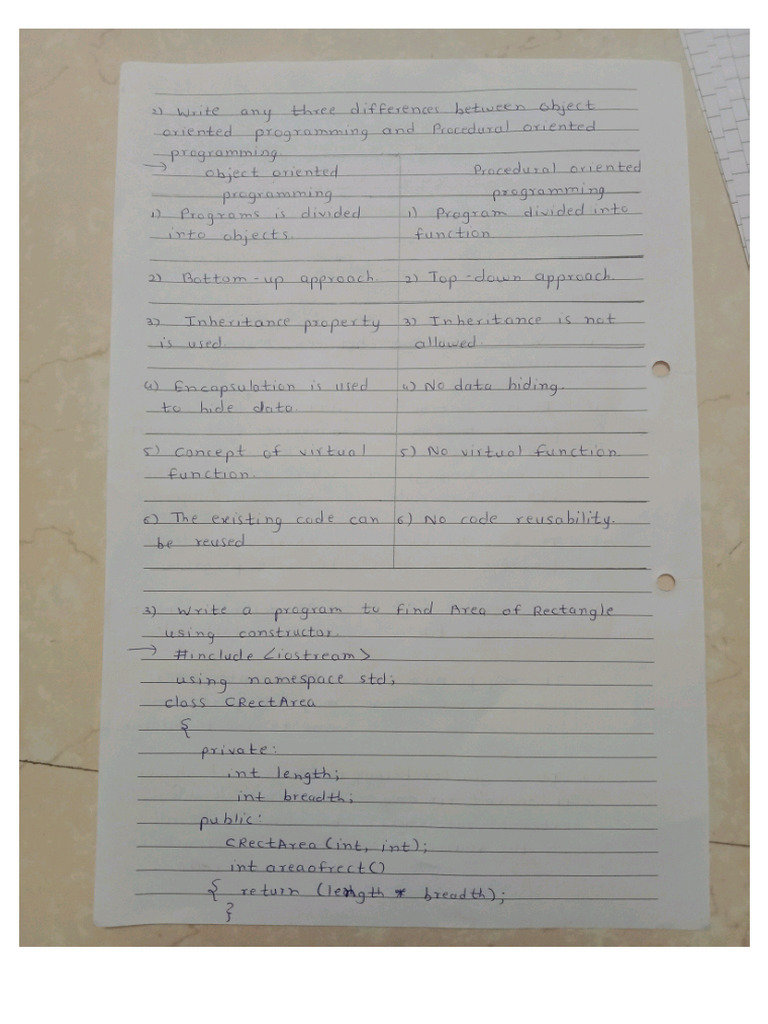 2) Write any three differences between object
oriented programming and Procedural oriented
programming.
→ object oriented programming
Procedural oriented programming
1) Programs is divided into objects.
1) Program divided into function
2) Bottom-up approach.
2) Top-down approach.
3) Inheritance property is used.
3) Inheritance is not allowed.
4) Encapsulation is used to hide data.
4) No data hiding.
5) Concept of virtual function.
5) No virtual function.
6) The existing code can be reused
6) No code reusability.
3) Write a program to find Area of Rectangle
using constructor.
→ #include <iostream>
using namespace std;
class CRectArea
{
private:
int length;
int breadth;
public:
CRectArea (int, int);
int areaofrect()
{ return (length * breadth);
}